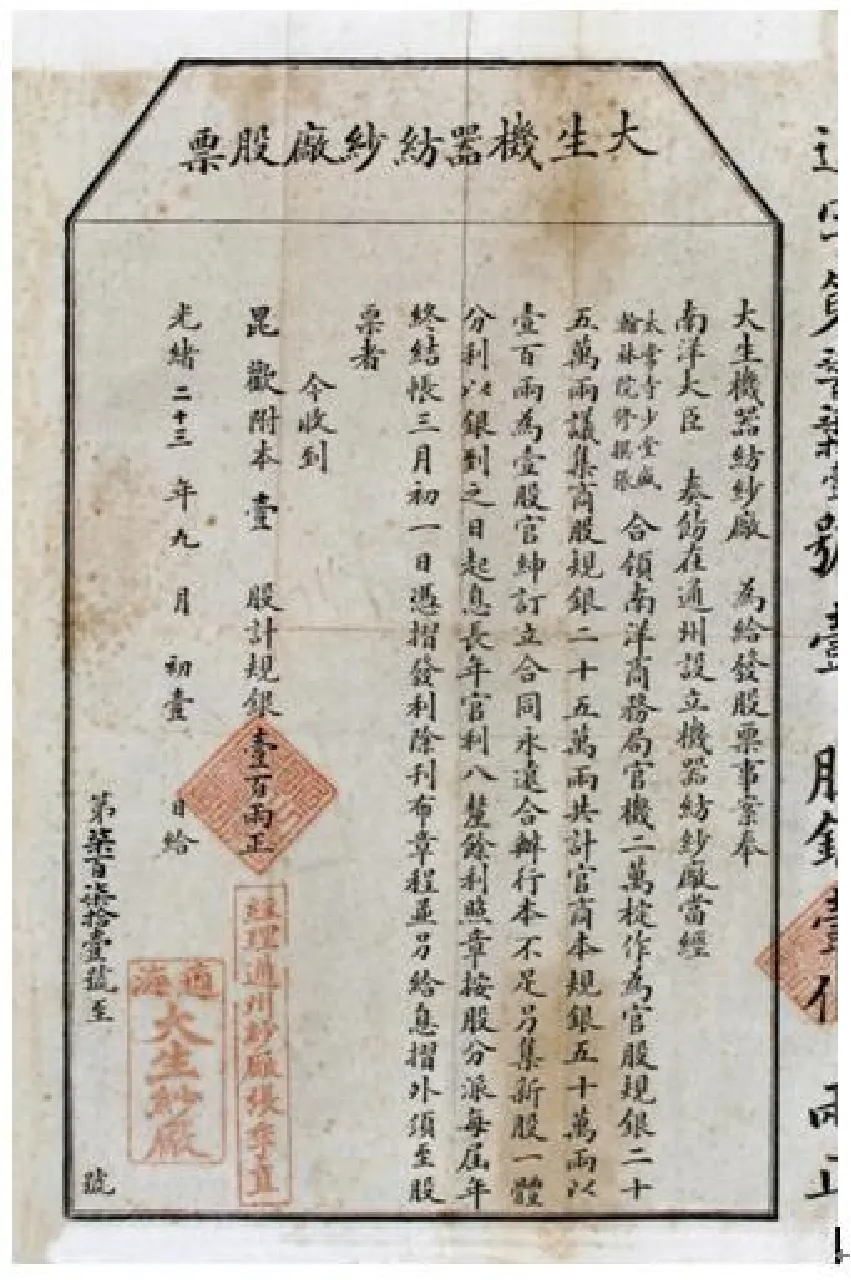 大生機器紡紗廠股票
大生機器紡紗廠 為給發股票事案奉
南洋大臣 奏飭在通州設立機器紡紗廠當經
太常寺少堂盛
翰林院修撰張
合領南洋商務局官機二萬椗作為官股規銀二十
五萬兩議集商股規銀二十五萬兩共計官商本規銀五十萬兩以
壹百兩為壹股官紳訂立合同永遠合辦行本不足另集新股一體
分利以銀到之日起息長年官利八釐餘利照章按股分派每屆年
終結帳三月初一日憑摺發利除刊布章程並另給息摺外須至股
票者
今收到
昆歡附本壹 股計規銀壹百兩正
光緒二十三年九月初壹 日給
第柒百柒拾壹號至 號
經理通州紗廠張季直
通海
大生紗廠
號壹 股銀壹 兩正